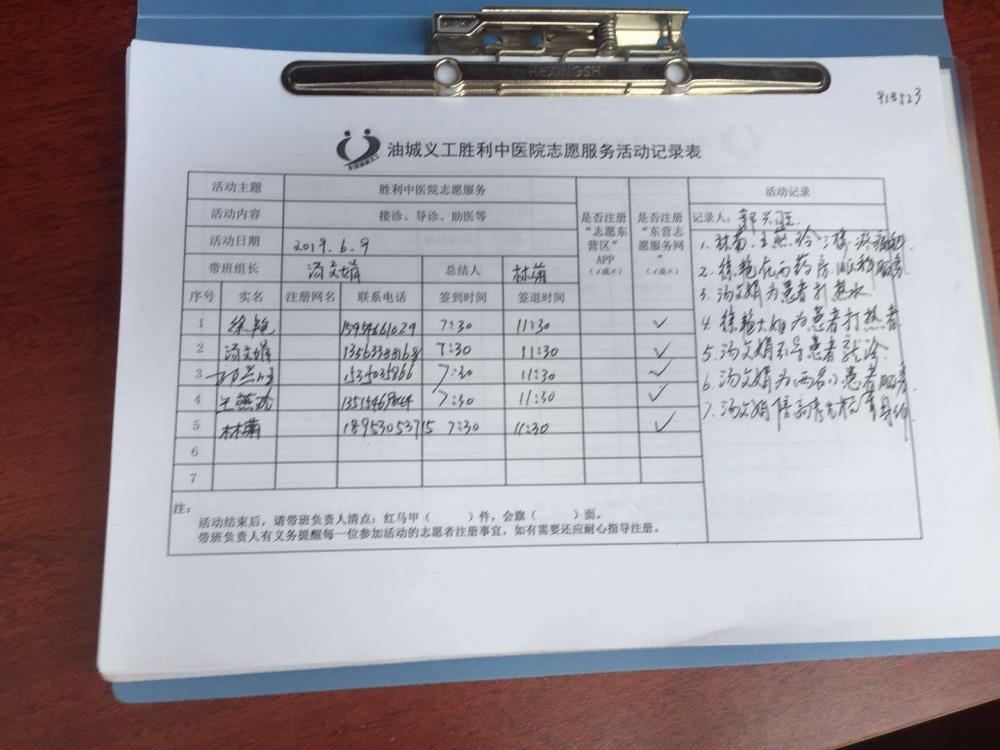 HEXINGSH
918523
油城义工胜利中医院志愿服务活动记录表
活动主题 胜利中医院志愿服务 是否注册“志愿东营区”APP(√或×) 是否注册“东营志愿服务网”(√或×) 活动记录
活动内容 接诊、导诊、助医等 记录人:
活动日期 2019.6.9
带班组长 汤文娟 总结人 林菊
序号 实名 注册网名 联系电话 签到时间 签退时间
1 徐艳 15954661029 7:30 11:30 ✓
2 汤文娟 13563388168 7:30 11:30 ✓
3 15345035866 7:30 11:30 ✓
4 王燕玲 7:30 11:30 ✓
5 林菊 18953053715 7:30 11:30 ✓
6
7
1. 林菊.王燕玲
2. 徐艳在西药房 服务
3. 汤文娟为患者打热水
4. 徐艳大姐为患者打热
5. 汤文娟引导患者就诊
6. 汤文娟为两名小患者服务
7. 汤文娟
注:
活动结束后,请带班负责人清点:红马甲( )件,会旗( )面。
带班负责人有义务提醒每一位参加活动的志愿者注册事宜,如有需要还应耐心指导注册。